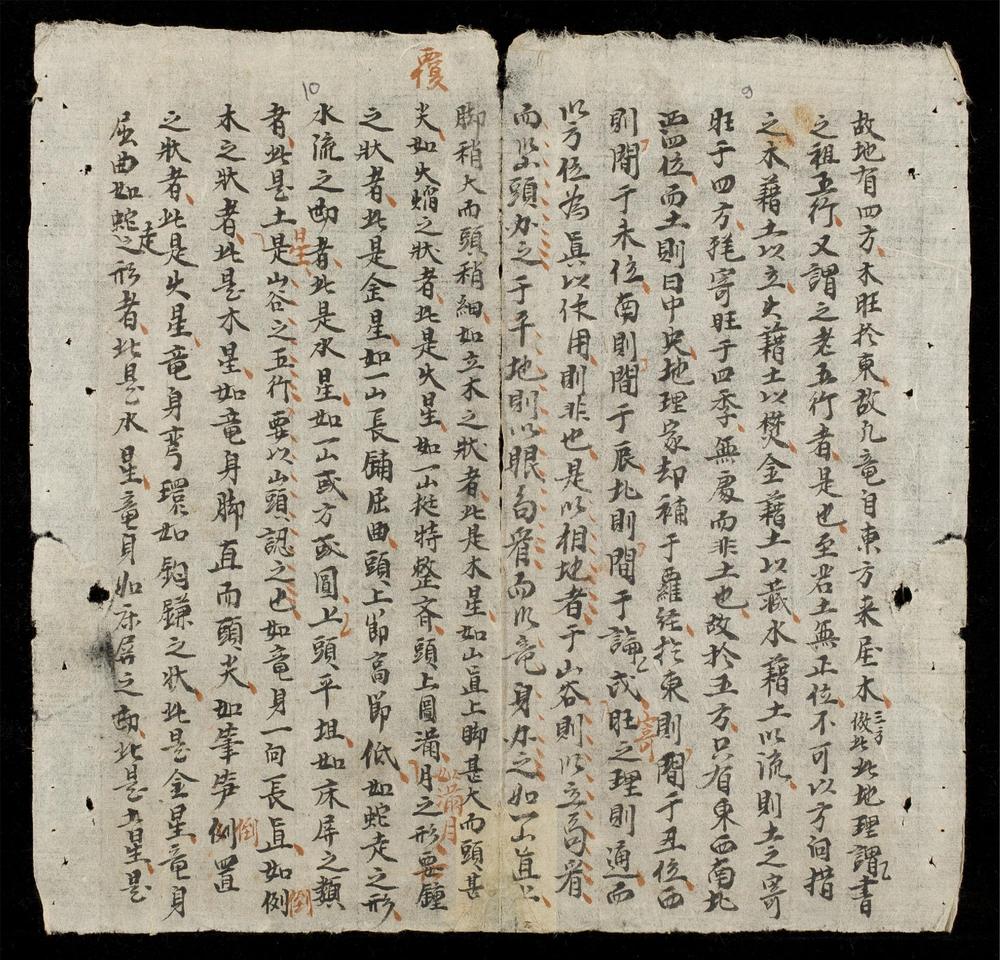 9
故地有四方木旺於東故凡竜自東方來屋木三方倣此此地理謂書
之祖五行又謂之老五行者是也至若土無正位不可以方向措
之木藉土以立火藉土以焚金藉土以藏水藉土以流則土之寄
旺于四方耗寄旺于四季無處而非土也故於五方只有東西南北
四位而土則曰中央地理家却補于羅経於東則間于丑位西
則間于未位南則間于辰北則間于論戌旺之理則通而
寄
以方位為真以作用則非也是以相地者于山谷則以立局看
而以山頭力之于平地則以眼局看而以竜身力之如一山直上
10
覆
脚稍大而頭稍細如立木之狀者此是木星如山直上脚甚大而頭甚
尖如火熖之狀者此是火星如一山挺特整斉頭上圓滿月之形要鐘
如滿月
之狀者此是金星如一山長鋪屈曲頭上節高節低如蛇走之形
水流之㔟者此是水星如一山或方或圓上頭平坦如床屏之類
者此是土是山谷之五行要以山頭認之也如竜身一向長直如例
星
倒
木之狀者此是木星如竜身脚直而頭尖如筆笋例置
倒
之狀者此是火星竜身彎環如鈎鎌之狀此是金星竜身
屈曲如蛇之形者此是水星竜身如床屏之㔟此是土星是
走